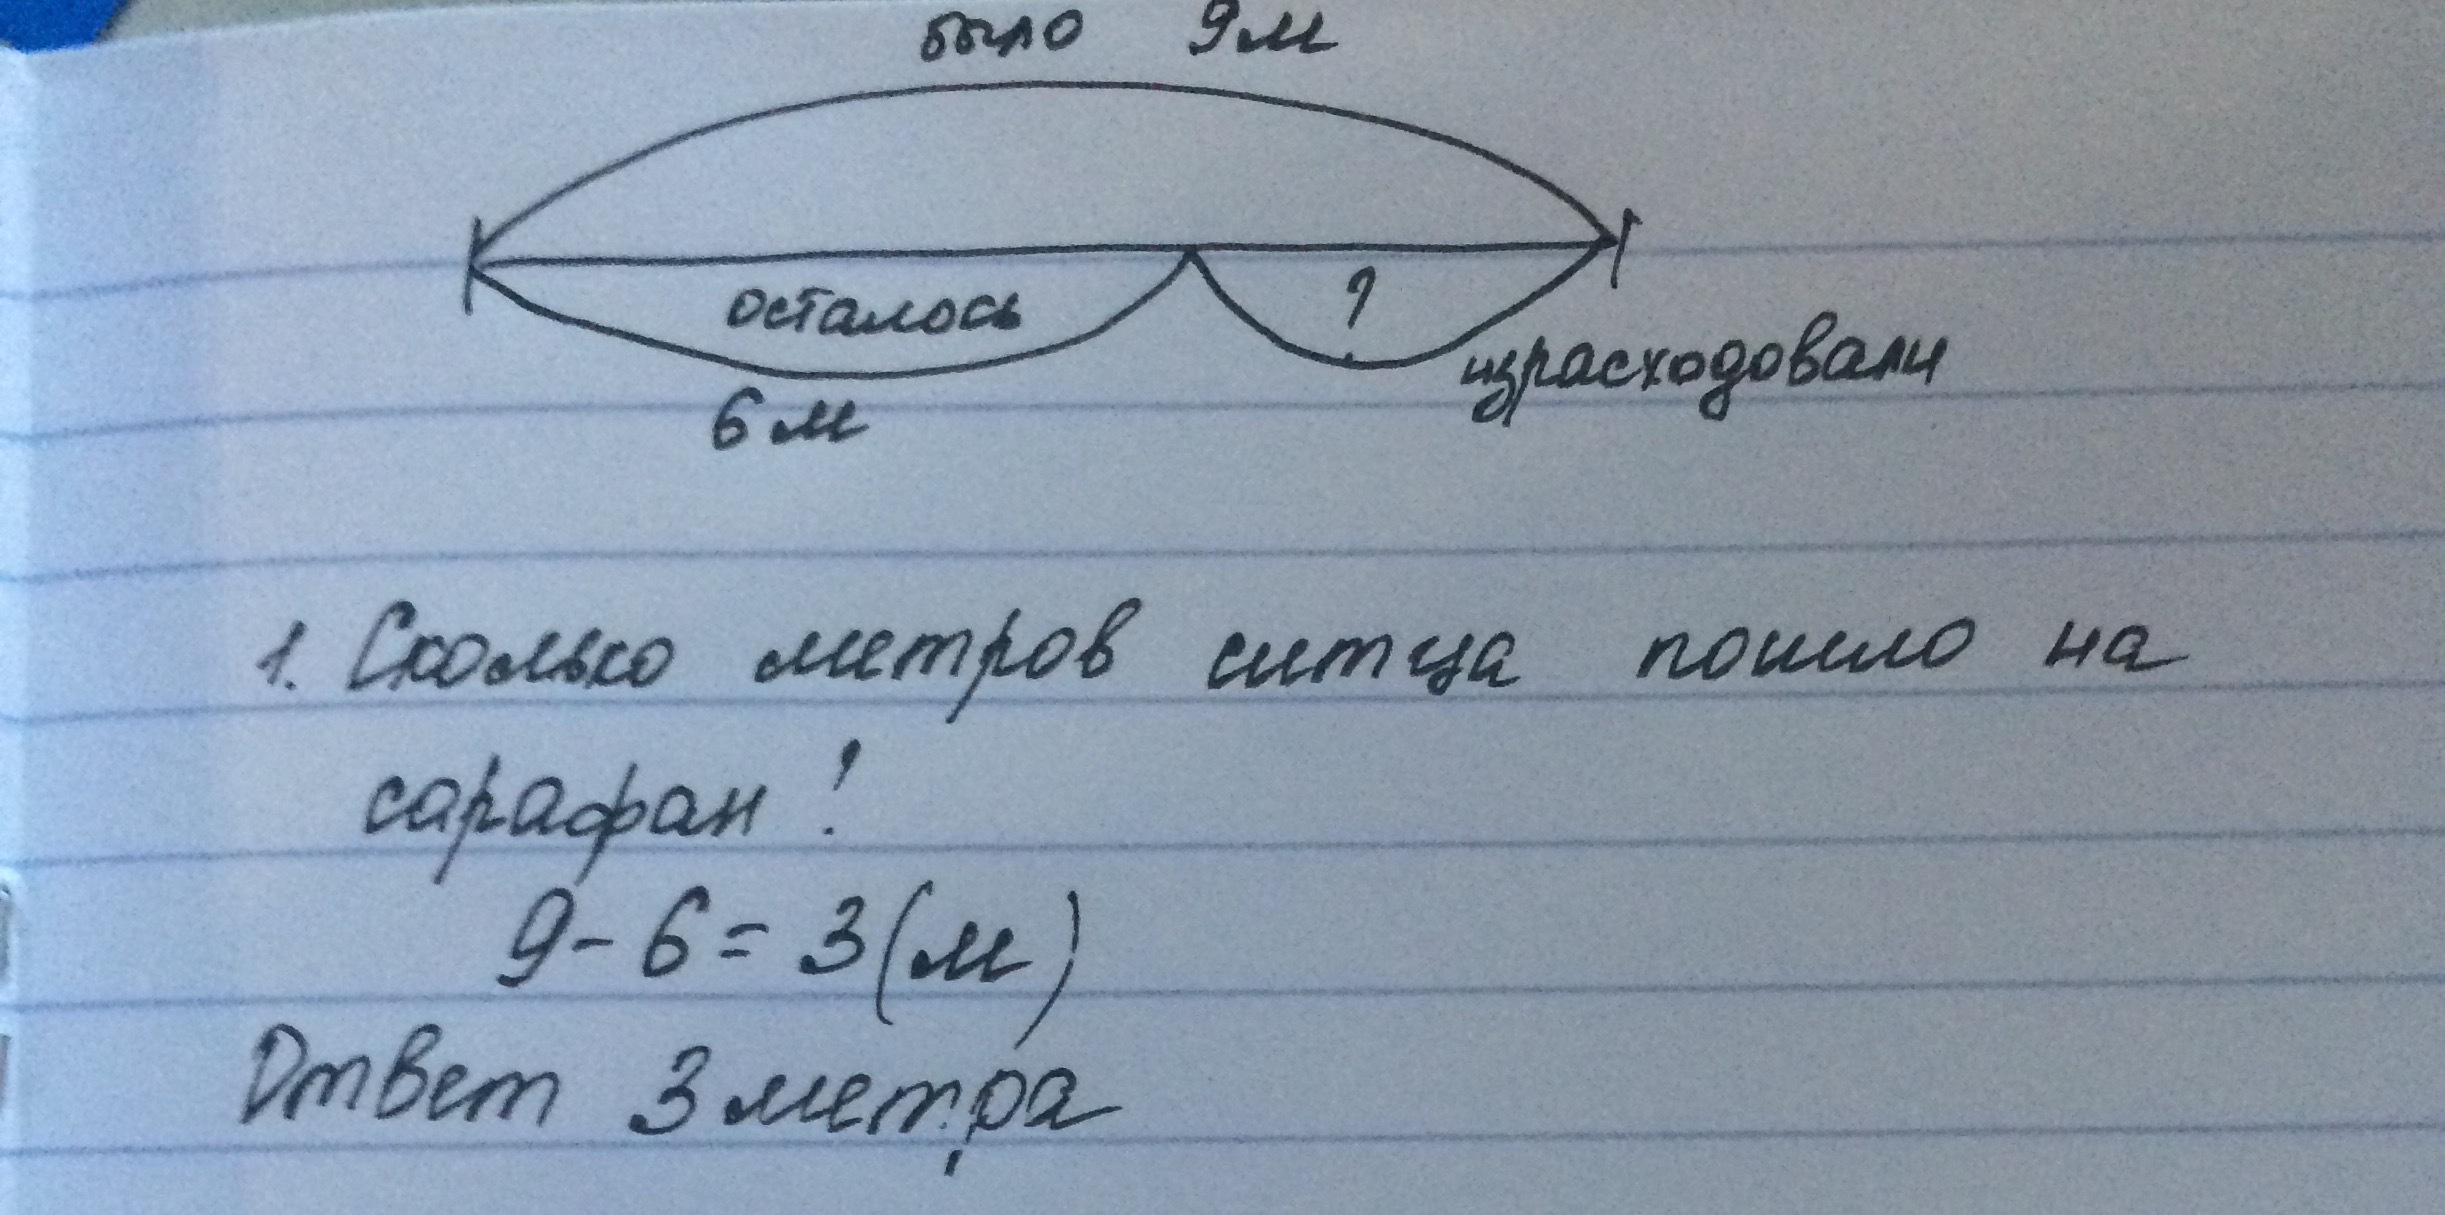 было 9м
осталось ?
израсходовали
6 м
1. Сколько метров ситца пошло на
сарафан !
9 - 6 = 3 (м)
Ответ 3 метра